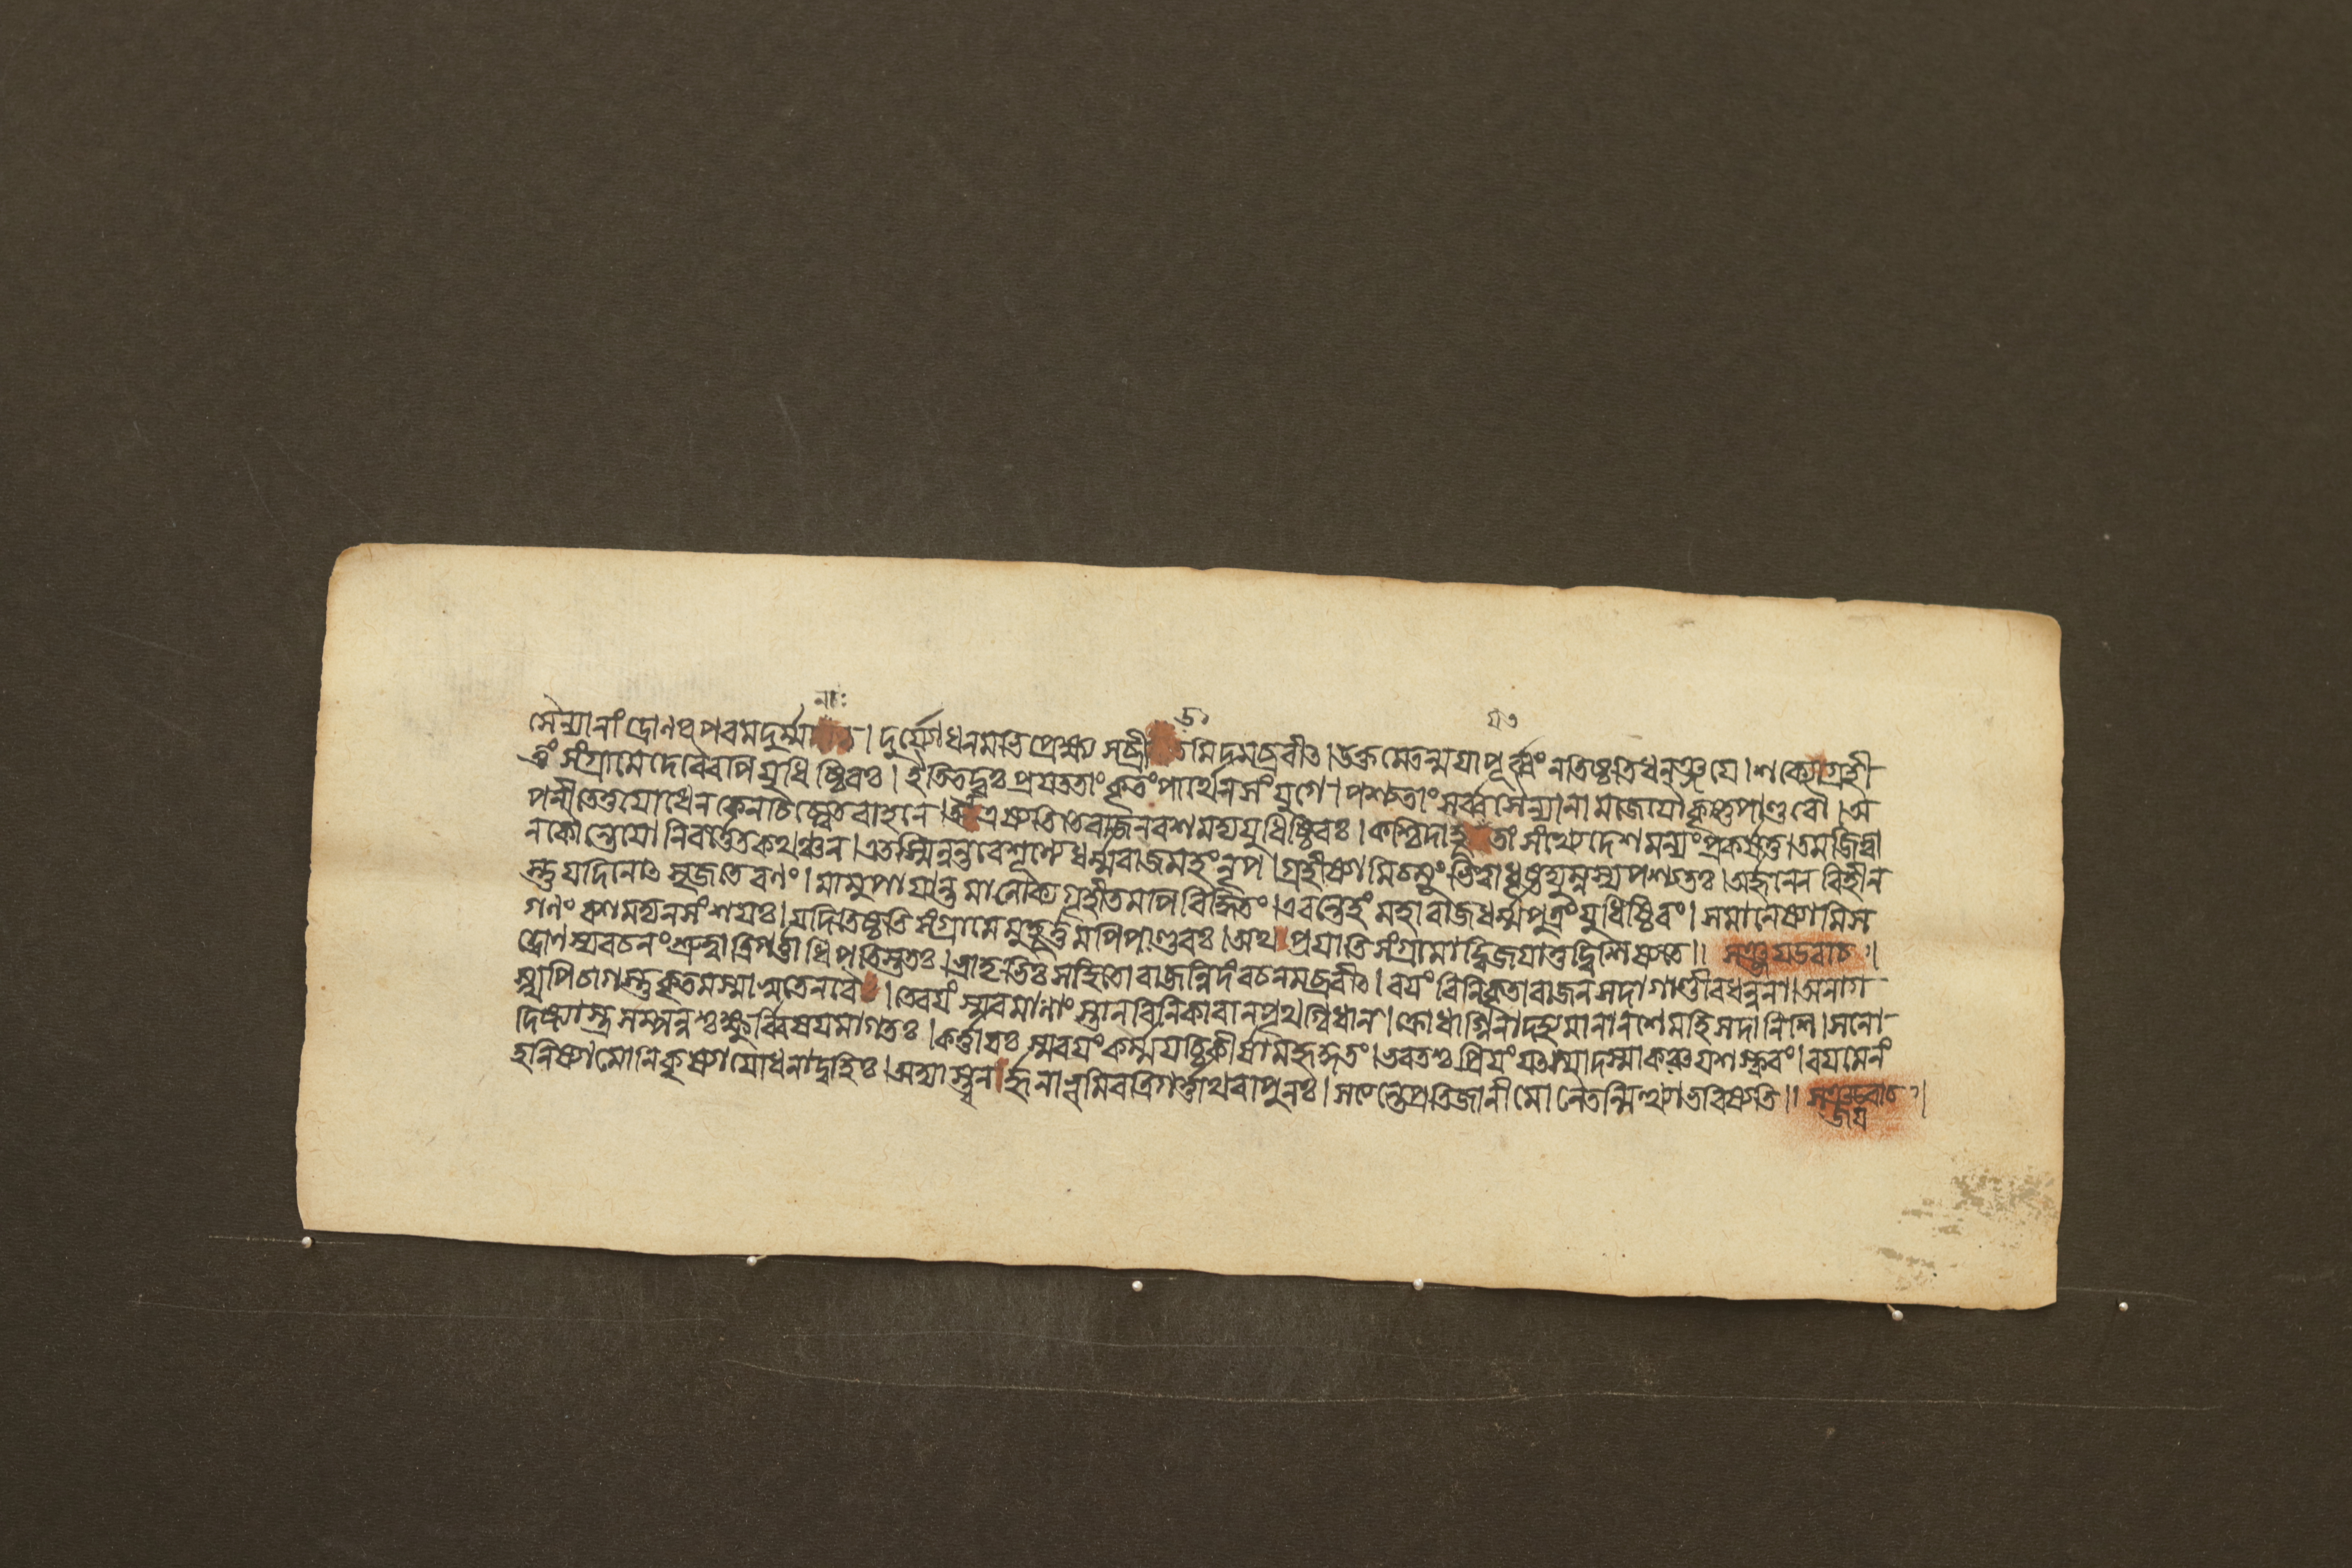 নাঃ ড যৎ
সৈন্যানাং দ্রোণঃ পরমদুর্ম্মনাঃ । দুর্য্যোধনমভিপ্রেক্ষ্য সব্রীডমিদমব্রবীৎ । উক্তমেতন্ময়াপূর্ব্বং নতিষ্ঠতিধনঞ্জয়ে । শক্যোগ্রহী
তুং সংগ্রামেদেবৈরপিযুধিষ্ঠিরঃ । ইতিতদ্বঃপ্রযততাংকৃতংপার্থেনসংযুগে । পশ্যতাংসর্ব্বসৈন্যানামজেয়ৌকৃষ্ণপাণ্ডবৌ । অ
পনীতেতুযোধেনকেনচিৎশ্বেতবাহনে । এষ্যতিতেরাজনবশমদ্যযুধিষ্ঠিরঃ । কশ্চিদাহূ তংসংখ্যেদেশমন্যংপ্রকর্ষতু । তমজিত্বা
নকৌন্তেয়োনিবর্ত্তেতকথঞ্চন । এতস্মিন্নন্তরেশূন্যেধর্ম্মরাজমহংনৃপ । গ্রহীষ্যামিচমূংভিত্বাধৃষ্টদ্যুম্নস্যপশ্যতঃ । অর্জ্জুনেনবিহীন
স্তুযদিনোৎসৃজতেরণং । মামুপায়ান্তমালোক্যগৃহীতমপিবিদ্ধিতং । এবন্তেহংমহারাজধর্ম্মপুত্রংযুধিষ্ঠিরং । সমানেষ্যামিস
গণংবশমদ্যনসংশয়ঃ । যদিতিষ্ঠতিসংগ্রামেমুহূর্ত্তমপিপাণ্ডবঃ । অথপ্রয়াতিসংগ্রামাদ্বিজয়াত্তদ্বিশিষ্যতে ॥ সঞ্জয়উবাচ ।
দ্রোণস্যবচনংশ্রুত্বাত্রিগর্ত্তাধিপতিস্ততঃ । ভ্রাতৃভিঃসহিতোরাজন্নিদংবচনমব্রবীৎ । বয়ংবিনিকৃতারাজনসদাগাণ্ডীবধন্বনা । অনাগ
স্স্বপিচাগস্তুকৃতমস্মাসুতেনবৈ । তেবয়ংস্মরমাণাংস্তানবিনিকারানপৃথগ্বিধান । ক্রোধাগ্নিনাদহ্যমানানশেমহিসদানিশি । সনো
দিষ্ট্যাস্ত্রসম্পন্নশ্চক্ষুর্ব্বিষয়মাগতঃ । কর্ত্তারঃস্মবয়ংকর্ম্মযচ্চিকীর্ষামহৃদ্গতং । ভবতশ্চপ্রিয়ংযৎস্যাদস্মাকঞ্চযশস্করং । বয়মেনং
হনিষ্যামোনিকৃষ্যাযোধনাদ্বহিঃ । অদ্যাস্ত্বনর্জ্জুনাভূমিরত্রিগর্ত্তাথবাপুনঃ । সত্যন্তেপ্রতিজানীমোনৈতন্মিথ্যাভবিষ্যতি ॥ সঞ্জয়উবাচ ।